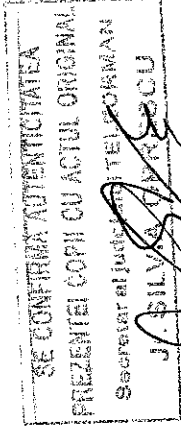 SE CONFIRMĂ AUTENTICITATEA
PREZENTEI COPII CU ACTUL ORIGINAL
Secretar al județului TELEORMAN
SILVIA